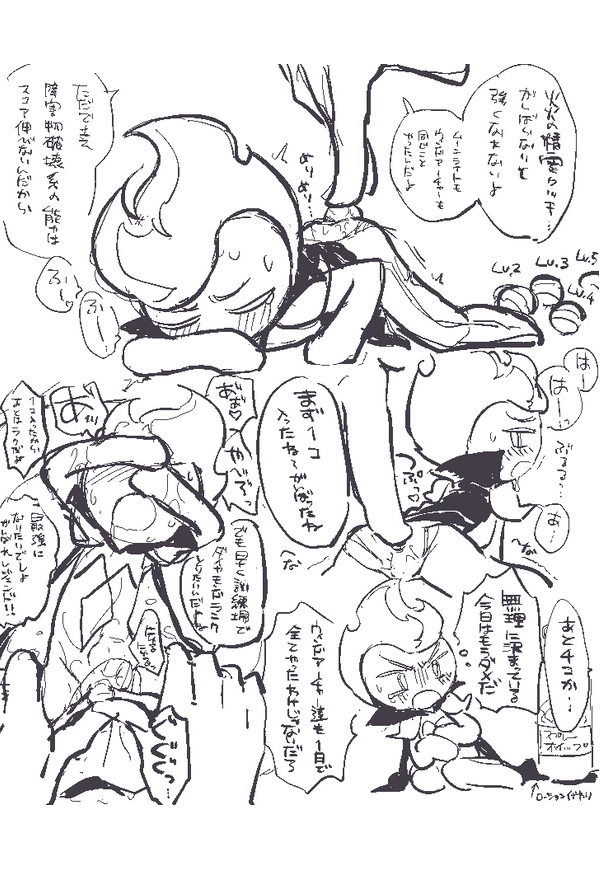 火の精霊クッキー
がんばらないと
強くなれないよ
ムーンライトも
ウィンドアーチャーも
同じこと
やったんだよ
めりめり…
ただでさえ
障害物破壊系の能力は
スコア伸びないんだから
ふーっ
ふーっ
Lv.2
Lv.3
Lv.4
Lv.5
はー
はー…
ぶるる…
あ…
まず1コ
入ったね〜がんばったね
あぁ♡
あ゛ッ
1コ入ったから
あとはラクだよ
最強に
なりたいでしょ
がんばれ
でも早く訓練場で
ダイヤモンドランク
とりたいんだよね
あと4コか…
無理に決まっている
今日はもうダメだ
ウィンドアーチャー達も1日で
全てやったわけじゃないだろ
スプレー
ホイップ
↑ローション